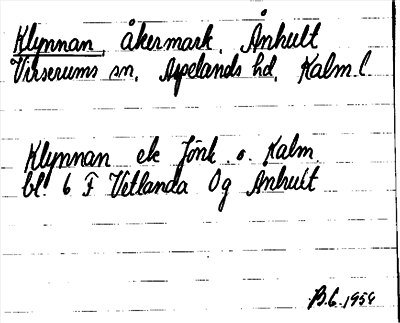 Klynnan, åkermark, Ånhult
Virserums sn, Aspelands hd, Kalm. l.
Klynnan ek Jönk. o. Kalm.
bl. 6 F Vetlanda Og Ånhult
B.G. 1954